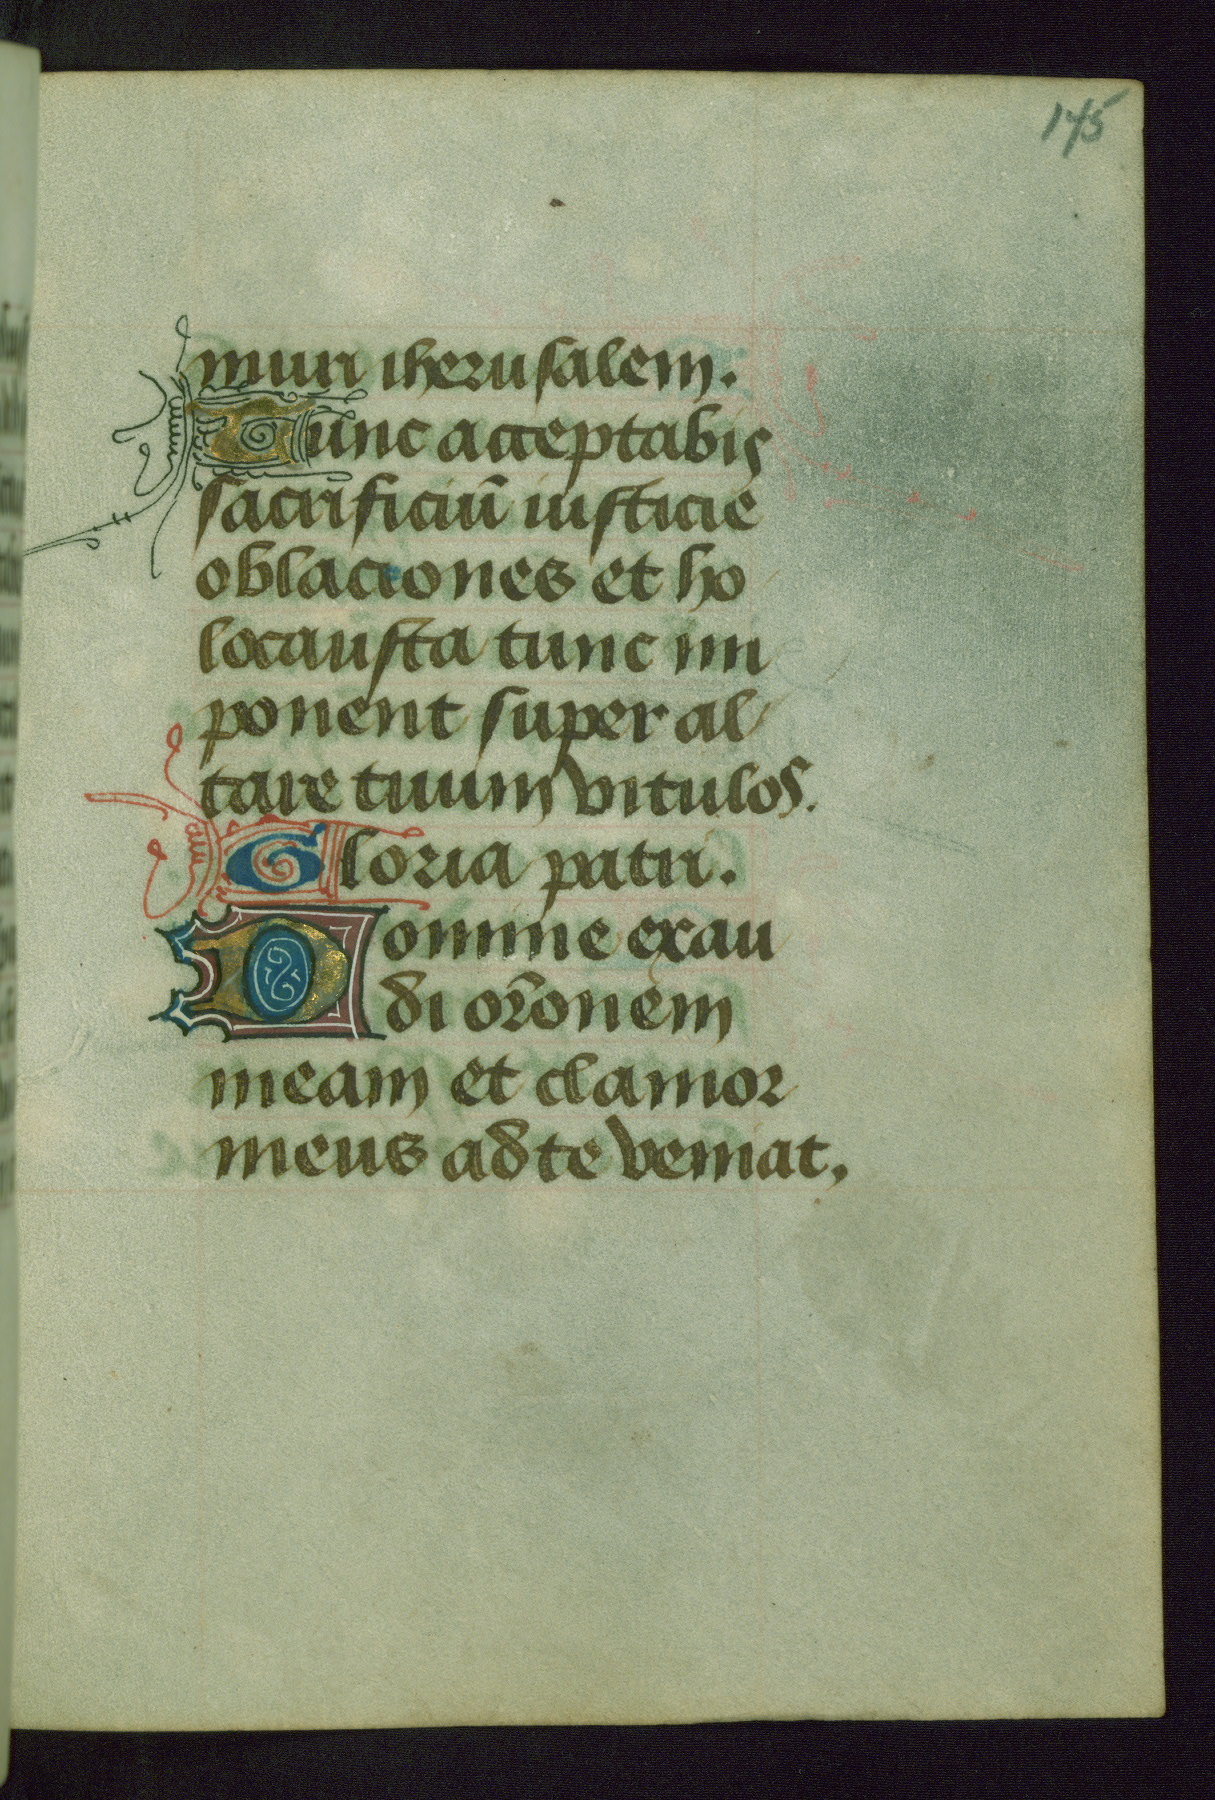 145
muri iherusalem.
Tunc acceptabis
sacrificiū iusticie
oblaciones et ho
locausta tunc im
ponent super al
tare tuum vitulos.
Gloria patri.
Domine exau
di or̄onem
meam et clamor
meus ad te veniat,